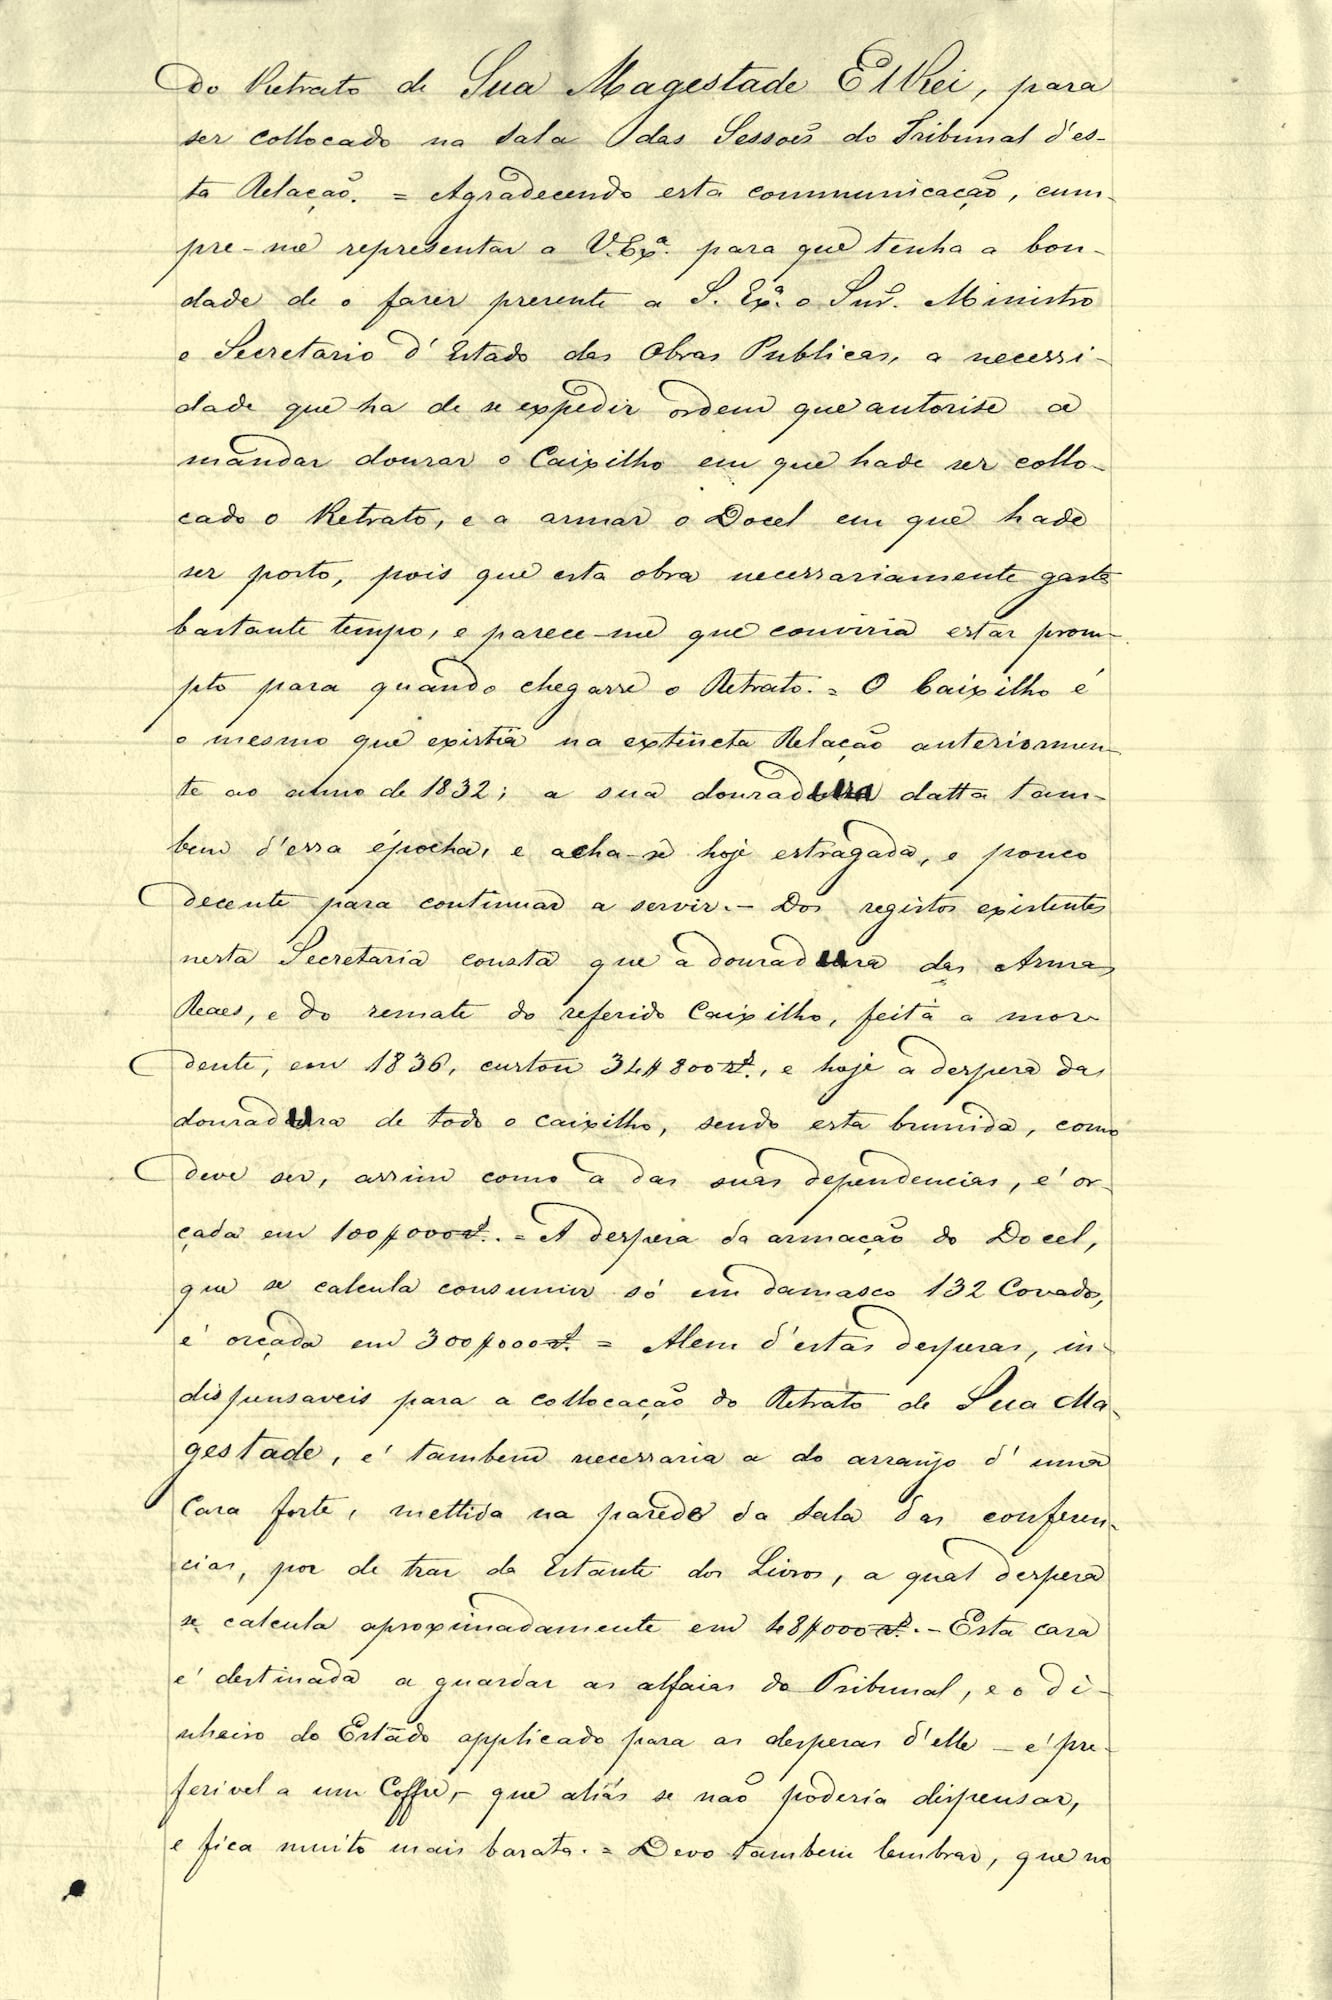 do Retrato de Sua Magestade ElRei, para
ser collocado na Sala das Sessões do Tribunal d'es-
ta Relação. = Agradecendo esta communicação, cum-
pre-me representar a V. Exª. para que tenha a bon-
dade de o fazer presente a S. Exª. o Snr. Ministro
e Secretario d'Estado das Obras Publicas, a necessi-
dade que ha de se expedir ordem que autorise a
mandar dourar o Caixilho em que hade ser collo-
cado o Retrato, e a armar o Docel em que hade
ser posto, pois que esta obra necessariamente gasta
bastante tempo, e parece-me que conviria estar prom-
pto para quando chegasse o Retrato. = O Caixilho é
o mesmo que existia na extincta Relação anteriormen-
te ao anno de 1832; a sua douradura datta tam-
bem d'essa épocha, e acha-se hoje estragada, e pouco
decente para continuar a servir. - Dos registos existentes
nesta Secretaria consta que a douradura das Armas
Reaes, e do remate do referido Caixilho, feita a mor-
dente, em 1836, custou 34$800 rs., e hoje a despesa da
douradura de todo o caixilho, sendo esta brunida, como
deve ser, assim como a das suas dependencias, é or-
çada em 100$000 rs. = A despesa da armação do Docel,
que se calcula consumir só em damasco 132 Covados,
é orçada em 300$000 rs. = Alem d'estas despesas, in-
dispensaveis para a collocação do Retrato de Sua Ma-
gestade, é tambem necessaria a do arranjo d'uma
Casa forte, mettida na parede da Sala das conferen-
cias, por de traz da Estante dos Livros, a qual despesa
se calcula aproximadamente em 48$000 rs. - Esta casa
é destinada a guardar as alfaias do Tribunal, e o di-
nheiro do Estado applicado para as despesas d'elle - é pre-
ferivel a um Coffre, - que aliás se não poderia dispensar,
e fica muito mais barata. = Devo tambem lembrar, que no